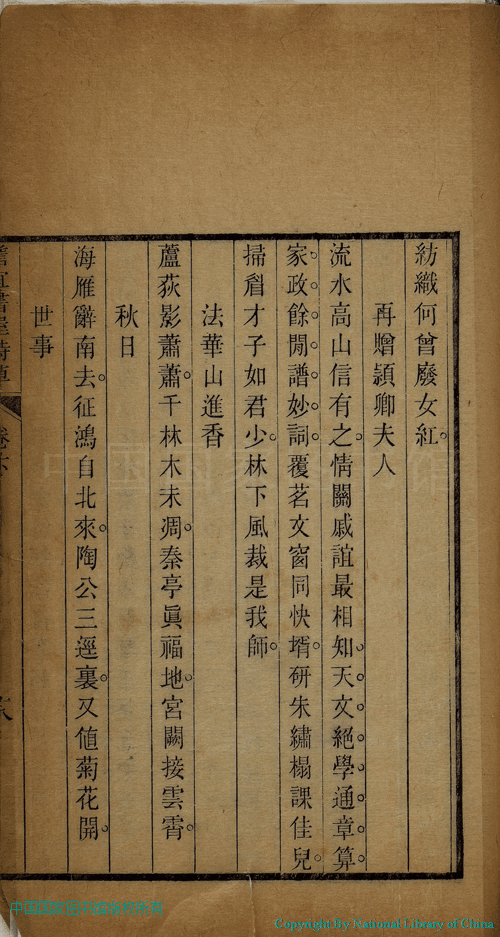 紡織何曾廢女紅。
再贈頴卿夫人
流水高山信有之。情關戚誼最相知。天文絕學通章算。
家政餘閒譜妙詞。覆茗文窗同快壻。研朱繡榻課佳兒。
掃眉才子如君少。林下風裁是我師。
法華山進香
蘆荻影蕭蕭。千林木未凋。秦亭眞福地。宮闕接雲霄。
秋日
海雁辭南去。征鴻自北來。陶公三逕裏。又値菊花開。
世事
Copyright by National Library of China